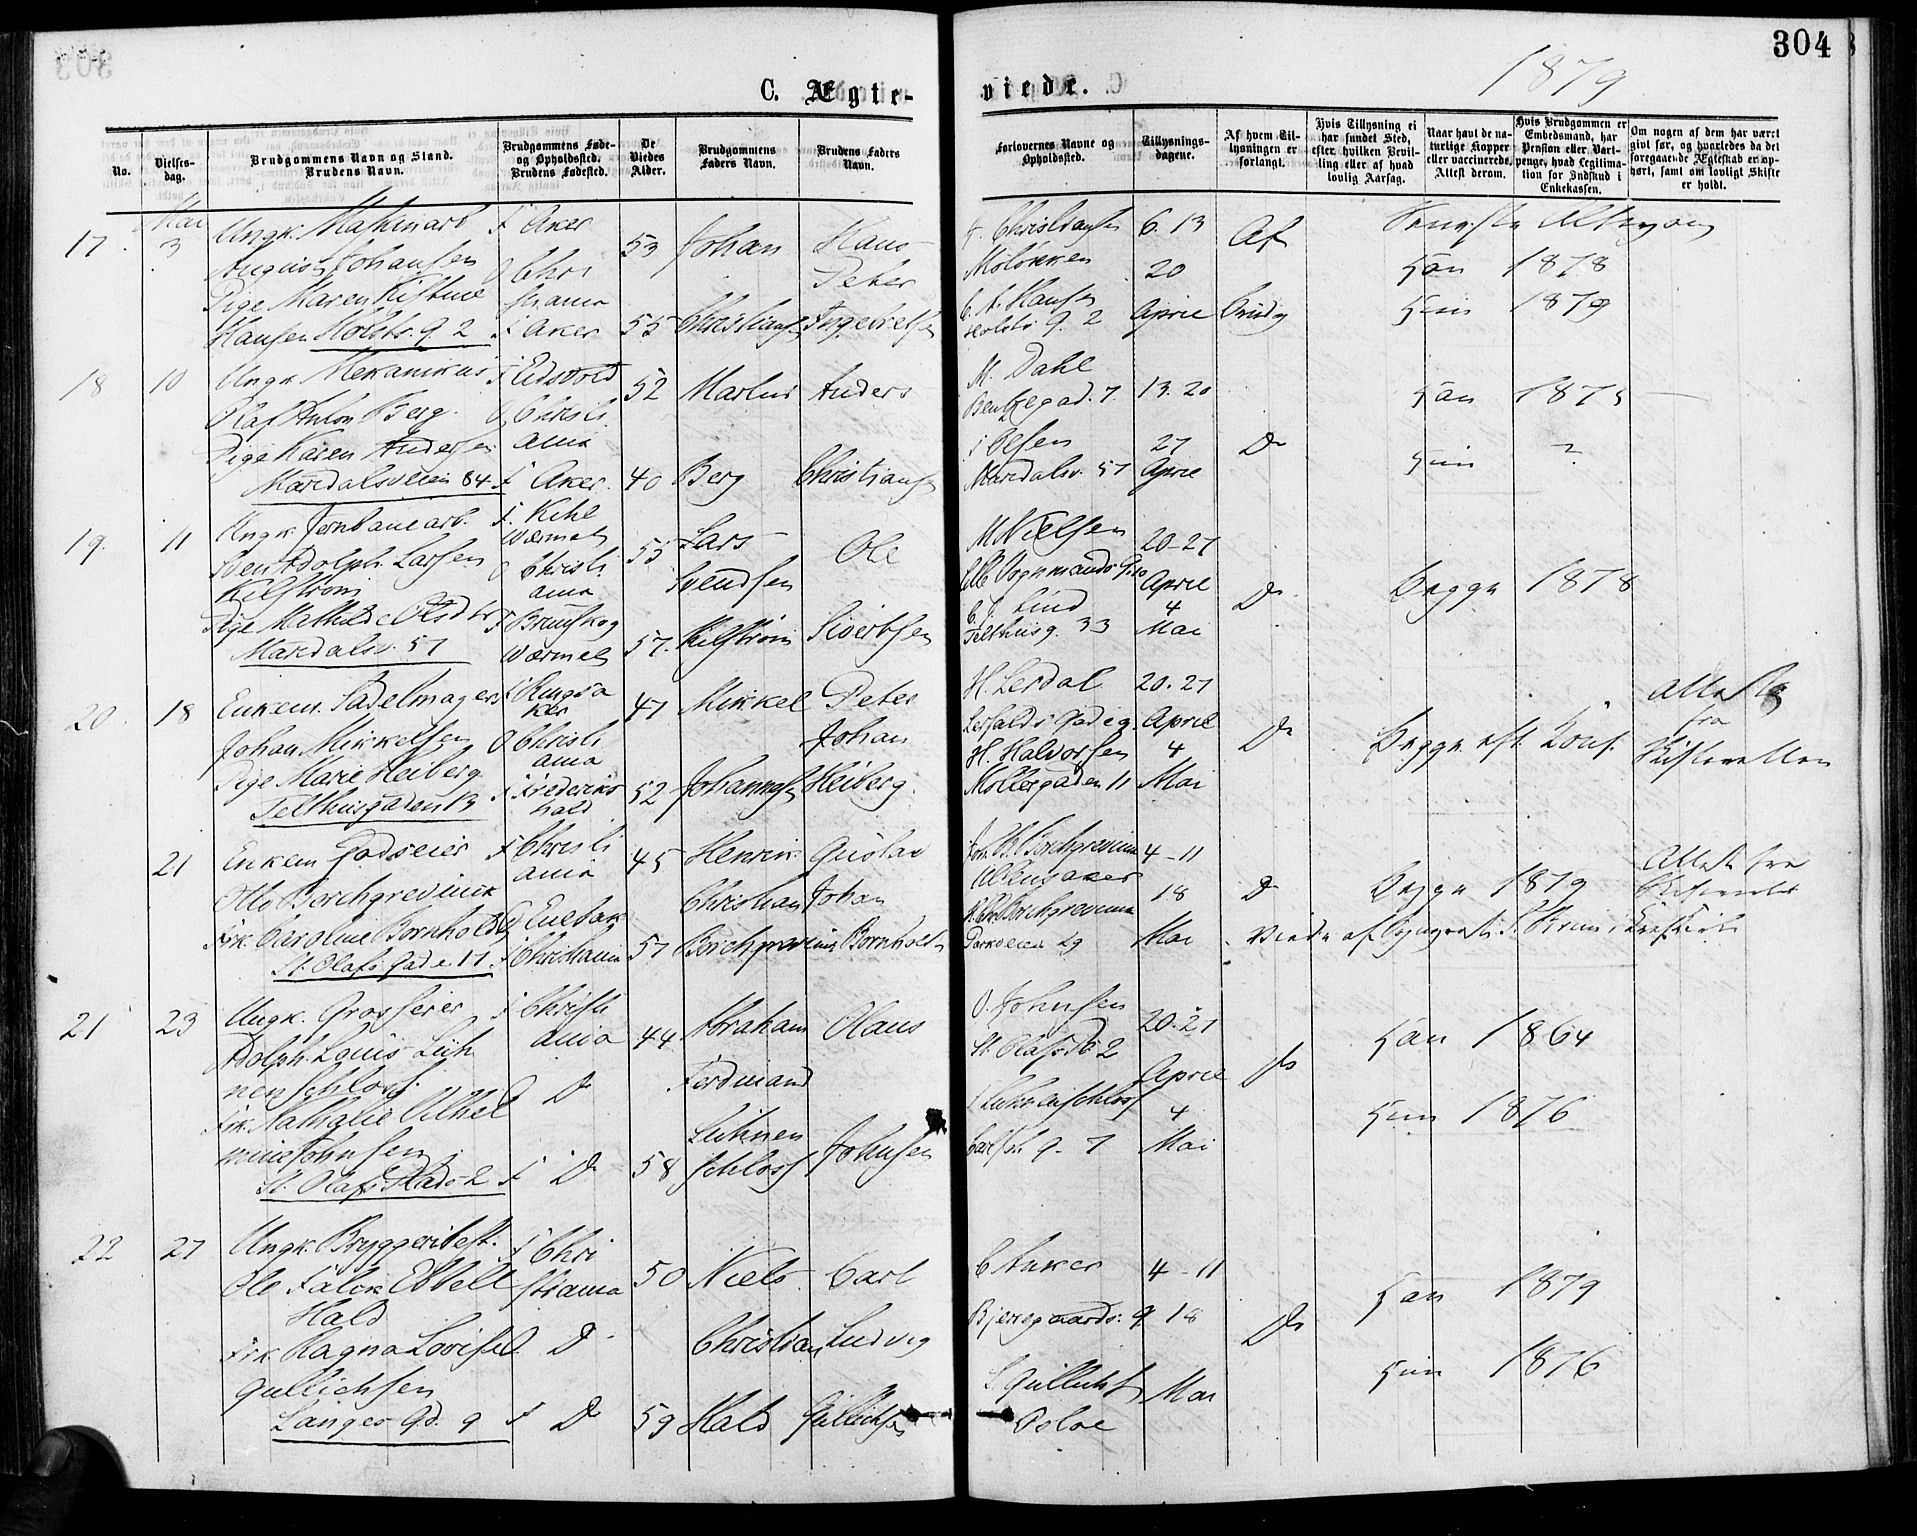 304
1879
C. Ægte-
viede.
No.
Vielses-
dag.
Brudgommens Navn og Stand.
Brudens Navn.
Brudgommens Føde-
og Opholdssted.
Brudens Fødested.
De
Viedes
Alder.
Brudgommens
Faders Navn.
Brudens Faders
Navn.
Forlovernes Navne og
Opholdssted.
Tillysnings-
dagene.
Af hvem Til-
lysningen er
forlangt.
Hvis Tillysning ei
har fundet Sted,
efter hvilken Bevil-
ling eller af hvad
lovlig Aarsag.
Naar havt de na-
turlige Kopper
eller vaccinerede.
Attest derom.
Hvis Brudgommen er
Embedsmand, har
Pension eller Vart-
penge, hvad Legitima-
tion for Indskud i
Enkekassen.
Om nogen af dem har været
givt før, og hvorledes da det
foregaaende Ægteskab er op-
hørt, samt om lovligt Skifte
er holdt.
Mai
17 3
Ungk. Maskinarb
August Johansen
Pige Maren Kistine
Hansen Holsts. g. 2
F Aker
O Chri
stiania
F Aker
53
55
Johan
Christiansen
Hans
Peter
Ingebretsen
J. Christiansen
Møløkken
C. A. Hansen
Holsts g. 2
6. 13
20
April
Af
Brudg
han 1878
hun 1879
18 10
Ungk. Mekanikus
Olaf Anton Berg.
Pige Karen Andersen
Maridalsveien 84
F Eidsvold
O Christi
ania
F Aker
52
40
Martin
Berg
Anders
Christiansen
M. Dahl
Bentzegad. 7
Olsen
Maridalsv. 57
13. 20
27
April
Do
han 1875
hun ?
19. 11
Ungk. Jernbanearb.
Sven Adolph Larsen
Kilstrøm
Pige Mathilde Olsdtr
Maridalsv. 57
F. Kihl
Wærmel
O Christi
ania
F Brunskog
Wærmel
55
57.
Lars
Svendsen
Kilstrøm
Ole
Sivertsen
M Nielsen
Lille Vognmands g. 10
C. J. Lind
Telthusg. 33
20-27
April
4
Mai
Do
Begge 1878
20 18
Enkem. Sadelmager
Johan Mikkelsen
Pige Marie Heiberg
Telthusgaden 13
F Ringsa
ker
O Christi
ania
F Frederiks
hald
47
52
Mikkel
Johannesen
Peter
Johan
Heiberg.
H. Lerdal
Lerfaldsgade 9
H. Halvorsen
Møllergaden 11
20. 27
April
4
Mai
Do
Begge eft. Conf.
Attest
fra
Skifteretten
21
Enkem Godseier
Otto Borchgrevinck
Frk. Caroline Bornholdt
St. Olafs Gade 17
F Christi
ania
O Enebak
F Christiania
45
57
Henrik
Christian
Borchgrevinck
Gustav
Johan
Bornholdt
Joh. B. Borchgrevink
Ullensaker
Borchgrevink
Parkveien 29
4-11
18
Mai
Do
Begge 1879
Attest fra
Skifteretten
21 23
Ungk. Grosserer
Adolph Louis Lüh
nenschloss.
Frk. Nathalie Vilhel
mine Johnsen
St. Olafs Plads 2
F Christi
ania
O Do
F Do
44
58
Abraham
Ferdinand
Lühnen
schloss
Olaus
Johnsen
O. Johnsen
St. Olafs Pl. 2
Lühnenschloss
Carl Joh. g. 7
20. 27
April
4
Mai
Do
han 1864
hun 1876
22 27
Ungk. Bryggeribest.
Ole Falck Ebbell
Hald
Frk. Ragna Lovise
Gullichsen
Langes Gd. 9
F Chri
stiania
O Do
F Do
50
59
Niels
Christian
Hald
Carl
Ludvig
Gullichsen
C Anker
Bjerregaards. g
S. Gullichs
Oslo
4-11
18
Mai
Do
han 1879
hun 1876